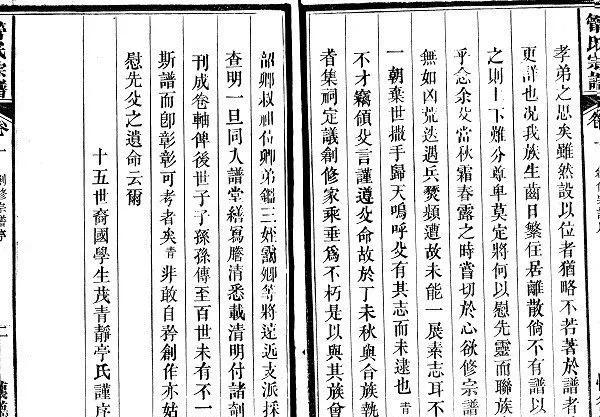 管氏宗譜
孝弟之思矣雖然設以位者猶略不若著於譜者
更詳也況我族生齒日繁住居離散倘不有譜以
之則上下難分尊卑莫定將何以慰先靈而聯族
乎念余父當秋霜春露之時嘗切於心欲修宗譜
無如凶荒迭遇兵燹頻遭故未能一展素志耳不
一朝棄世撒手歸天嗚呼父有其志而未逮也青
不才竊領父言謹遵父命故於丁未秋與合族執
者集祠定議創修家乘垂爲不朽是以與其族會
韶卿叔祖位卿弟鑑三姪靄卿等將遠近支派採
查明一旦同入譜堂繕寫謄清悉載清明付諸剞
刊成卷軸俾後世子子孫孫傳至百世未有不一
斯譜而卽彰彰可考者矣青非敢自矜創作亦姑
慰先父之遺命云爾
十五世裔國學生茂青靜亭氏謹序
管氏宗譜
卷一
創修宗譜序
二